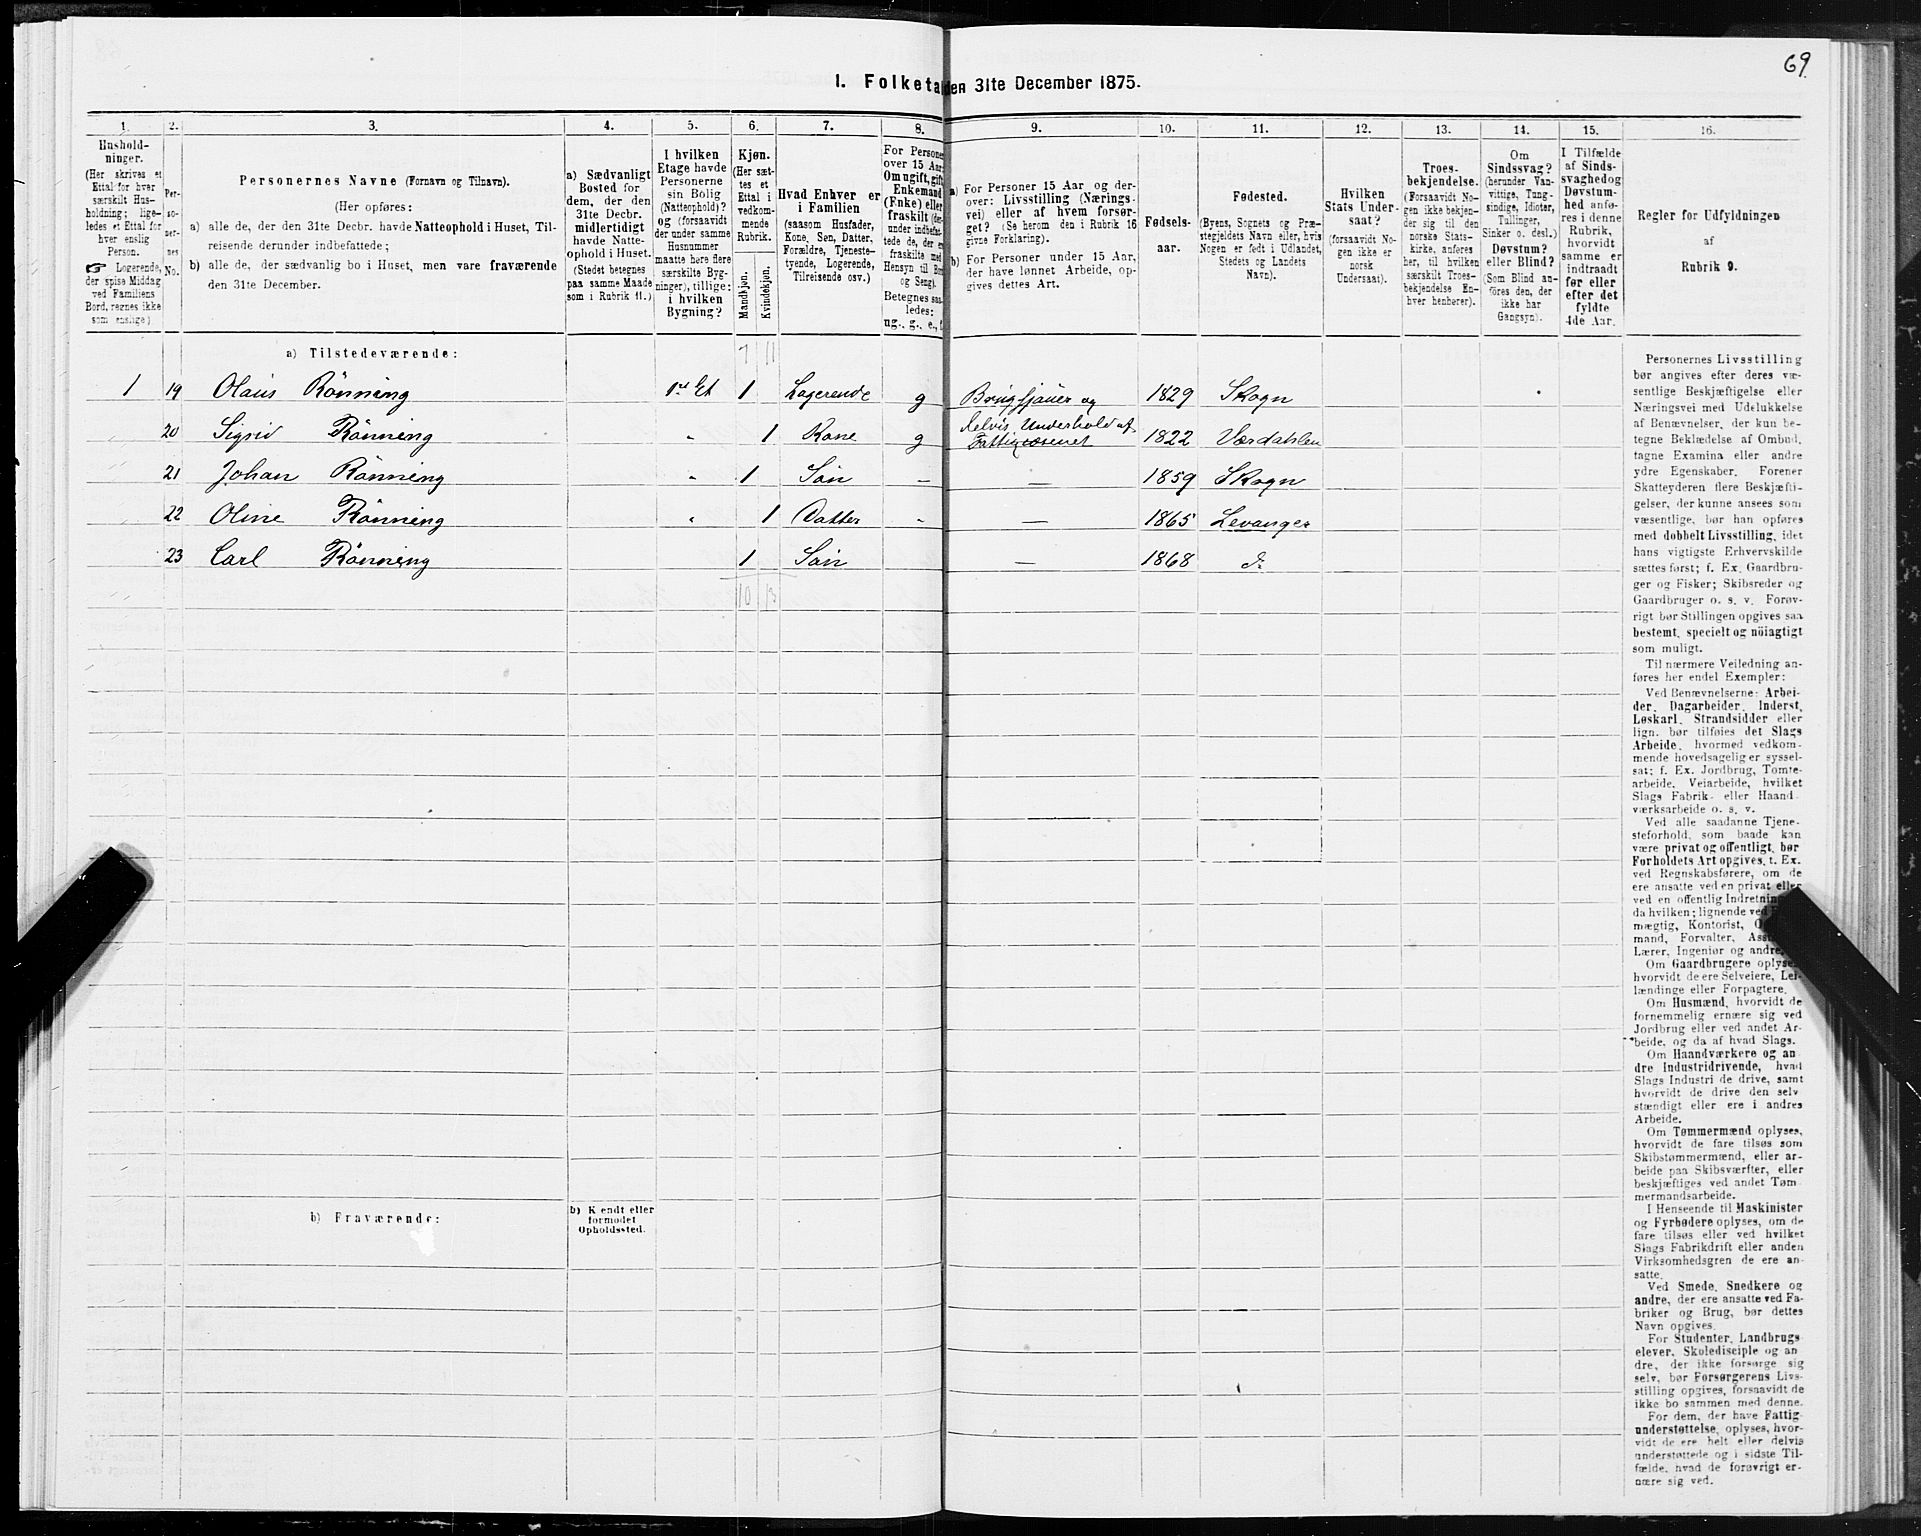 69
I. Folketal den 31te December 1875.
1. 2. 3. 4. 5. 6. 7. 8. 9. 10. 11. 12. 13. 14. 15. 16.
Hushold-
ninger.
(Her skrives et
Ettal for hver
særskilt Hus-
holdning; lige-
ledes et Ettal for
hver enslig
Person.
☞ Logerende,
der spise Middag
ved Familiens
Bord, regnes ikke
som enslige)
Per-
so-
ner-
nes
No.
Personernes Navne (Fornavn og Tilnavn).
(Her opføres:
a) alle de, der den 31te Decbr. havde Natteophold i Huset, Til-
reisende derunder indbefattede;
b) alle de, der sædvanlig bo i Huset, men vare fraværende
den 31te December.
a) Sædvanligt
Bosted for
dem, der den
31te Decbr.
midlertidigt
havde Natte-
ophold i Huset.
(Stedet betegnes
paa samme Maade
som i Rubrik 11.)
I hvilken
Etage havde
Personerne
sin Bolig
(Natteophold)?
og (forsaavidt
der under samme
Husnummer
maatte høre flere
særskilte Byg-
ninger), tillige:
i hvilken
Bygning?
Kjøn.
(Her sæt-
tes et
Ettal i
vedkom-
mende
Rubrik.
Mandkjøn.
Kvindekjøn.
Hvad Enhver er
i Familien
(saasom Husfader,
Kone, Søn, Datter,
Forældre, Tjeneste-
tyende, Logerende,
Tilreisende osv.)
For Personer
over 15 Aar:
Om ugift, gift,
Enkemand
(Enke) eller
fraskilt (der-
under indbefat-
tede de, der ere
fraskilte med
Hensyn til Bord
og Seng).
Betegnes saa-
ledes:
ug., g., e., f.
a) For Personer 15 Aar og der-
over: Livsstilling (Nærings-
vei) eller af hvem forsør-
get? (Se herom den i Rubrik 16
givne Forklaring).
b) For Personer under 15 Aar,
der have lønnet Arbeide, op-
gives dettes Art.
Fødsels-
aar.
Fødested.
(Byens, Sognets og Præ-
stegjeldets Navn eller, hvis
Nogen er født i Udlandet,
Stedets og Landets
Navn).
Hvilken
Stats Under-
saat?
(forsaavidt No-
gen ikke er
norsk
Undersaat).
Troes-
bekjendelse.
(Forsaavidt No-
gen ikke bekjen-
der sig til den
norske Stats-
kirke, anføres
her, til hvilken
særskilt Troes-
bekjendelse En-
hver henhører).
Om
Sindssvag?
(herunder Van-
vittige, Tung-
sindige, Idioter,
Tullinger,
Sinker o. desl.)
Døvstum?
eller Blind?
(Som Blind an-
føres den, der
ikke har
Gangsyn).
I Tilfælde
af Sinds-
svaghed og
Døvstum-
hed anfø-
res i denne
Rubrik,
hvorvidt
samme er
indtraadt
før eller
efter det
fyldte
4de Aar.
Regler for Udfyldningen
af
Rubrik 9.
a) Tilstedeværende:
7 11
1 19 Olaus Rönning 1st Et 1 Logerende g Brugsjouer og 1829 Skogn
20 Sigrid Rönning " 1 Kone g delvis Underhold af Fattigvæsenet 1822 Værdahlen
21 Johan Rönning " 1 Sön – – 1859 Skogn
22 Oline Rönning " 1 Datter – – 1865 Levanger
23 Carl Rönning 1 Sön – 1868 d:
10 13
b) Fraværende:
b) Kjendt eller
formodet
Opholdssted.
Personernes Livsstilling
bør angives efter deres væ-
sentlige Beskjæftigelse eller
Næringsvei med Udelukkelse
af Benævnelser, der kun be-
tegne Beklædelse af Ombud,
tagne Examina eller andre
ydre Egenskaber. Forener
Skatteyderen flere Beskjæfti-
gelser, der kunne ansees som
væsentlige, bør han opføres
med dobbelt Livsstilling, idet
hans vigtigste Erhvervskilde
sættes først; f. Ex. Gaardbru-
ger og Fisker; Skibsreder og
Gaardbruger o. s. v. Forøv-
rigt bør Stillingen opgives saa
bestemt, specielt og nöiagtigt
som muligt.
Til nærmere Veiledning an-
føres her endel Exempler:
Ved Benævnelserne: Arbei-
der, Dagarbeider, Inderst,
Løskarl, Strandsidder eller
lign. bør tilføies det Slags
Arbeide, hvormed vedkom-
mende hovedsagelig er syssel-
sat; f. Ex. Jordbrug, Tomte-
arbeide, Veiarbeide, hvilket
Slags Fabrik- eller Haand-
værksarbeide o. s. v.
Ved alle saadanne Tjene-
steforhold, som baade kan
være privat og offentligt, bør
Forholdets Art opgives, t. Ex.
ved Regnskabsførere, om de
ere ansatte ved en privat eller
ved en offentlig Indretning
da hvilken; lignende ved
mægtig, Kontorist,
mand, Forvalter,
Lærer, Ingeniør og andre.
Om Gaardbrugere oplyses,
hvorvidt de ere Selveiere, Lei-
lændinge eller Forpagtere.
Om Husmænd, hvorvidt de
fornemmelig ernære sig ved
Jordbrug eller ved andet Ar-
beide, og da af hvad Slags.
Om Haandværkere og an-
dre Industridrivende, hvad
Slags Industri de drive, samt
hvorvidt de drive den selv-
stændigt eller ere i andres
Arbeide.
Om Tømmermænd oplyses,
hvorvidt de fare tilsøs som
Skibstømmermænd, eller ar-
beide paa Skibsværfter, eller
beskjæftiges ved andet Tøm-
mermandsarbeide.
I Henseende til Maskinister
og Fyrbødere oplyses, om de
fare tilsøs eller ved hvilket
Slags Fabrikdrift eller anden
Virksomhedsgren de ere an-
satte.
Ved Smede, Snedkere og
andre, der ere ansatte ved Fa-
briker og Brug, bør dettes
Navn opgives.
For Studenter, Landbrugs-
elever, Skoledisciple og an-
dre, der ikke forsørge sig
selv, bør Forsørgerens Livs-
stilling opgives, forsaavidt de
ikke bo sammen med denne.
For dem, der have Fattig-
understøttelse, oplyses, hvor-
vidt de ere helt eller delvis
understøttede og i sidste Til-
fælde, hvad de forøvrigt er-
nære sig ved.